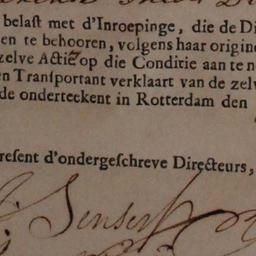 belaſt met d'Inroepinge, die de Di
en te behooren, volgens haar origine
zelve Actie op die Conditie aan te n
en Tranſportant verklaart van de zelv
de onderteekent in Rotterdam den
reſent d'ondergeſchreve Directeurs,